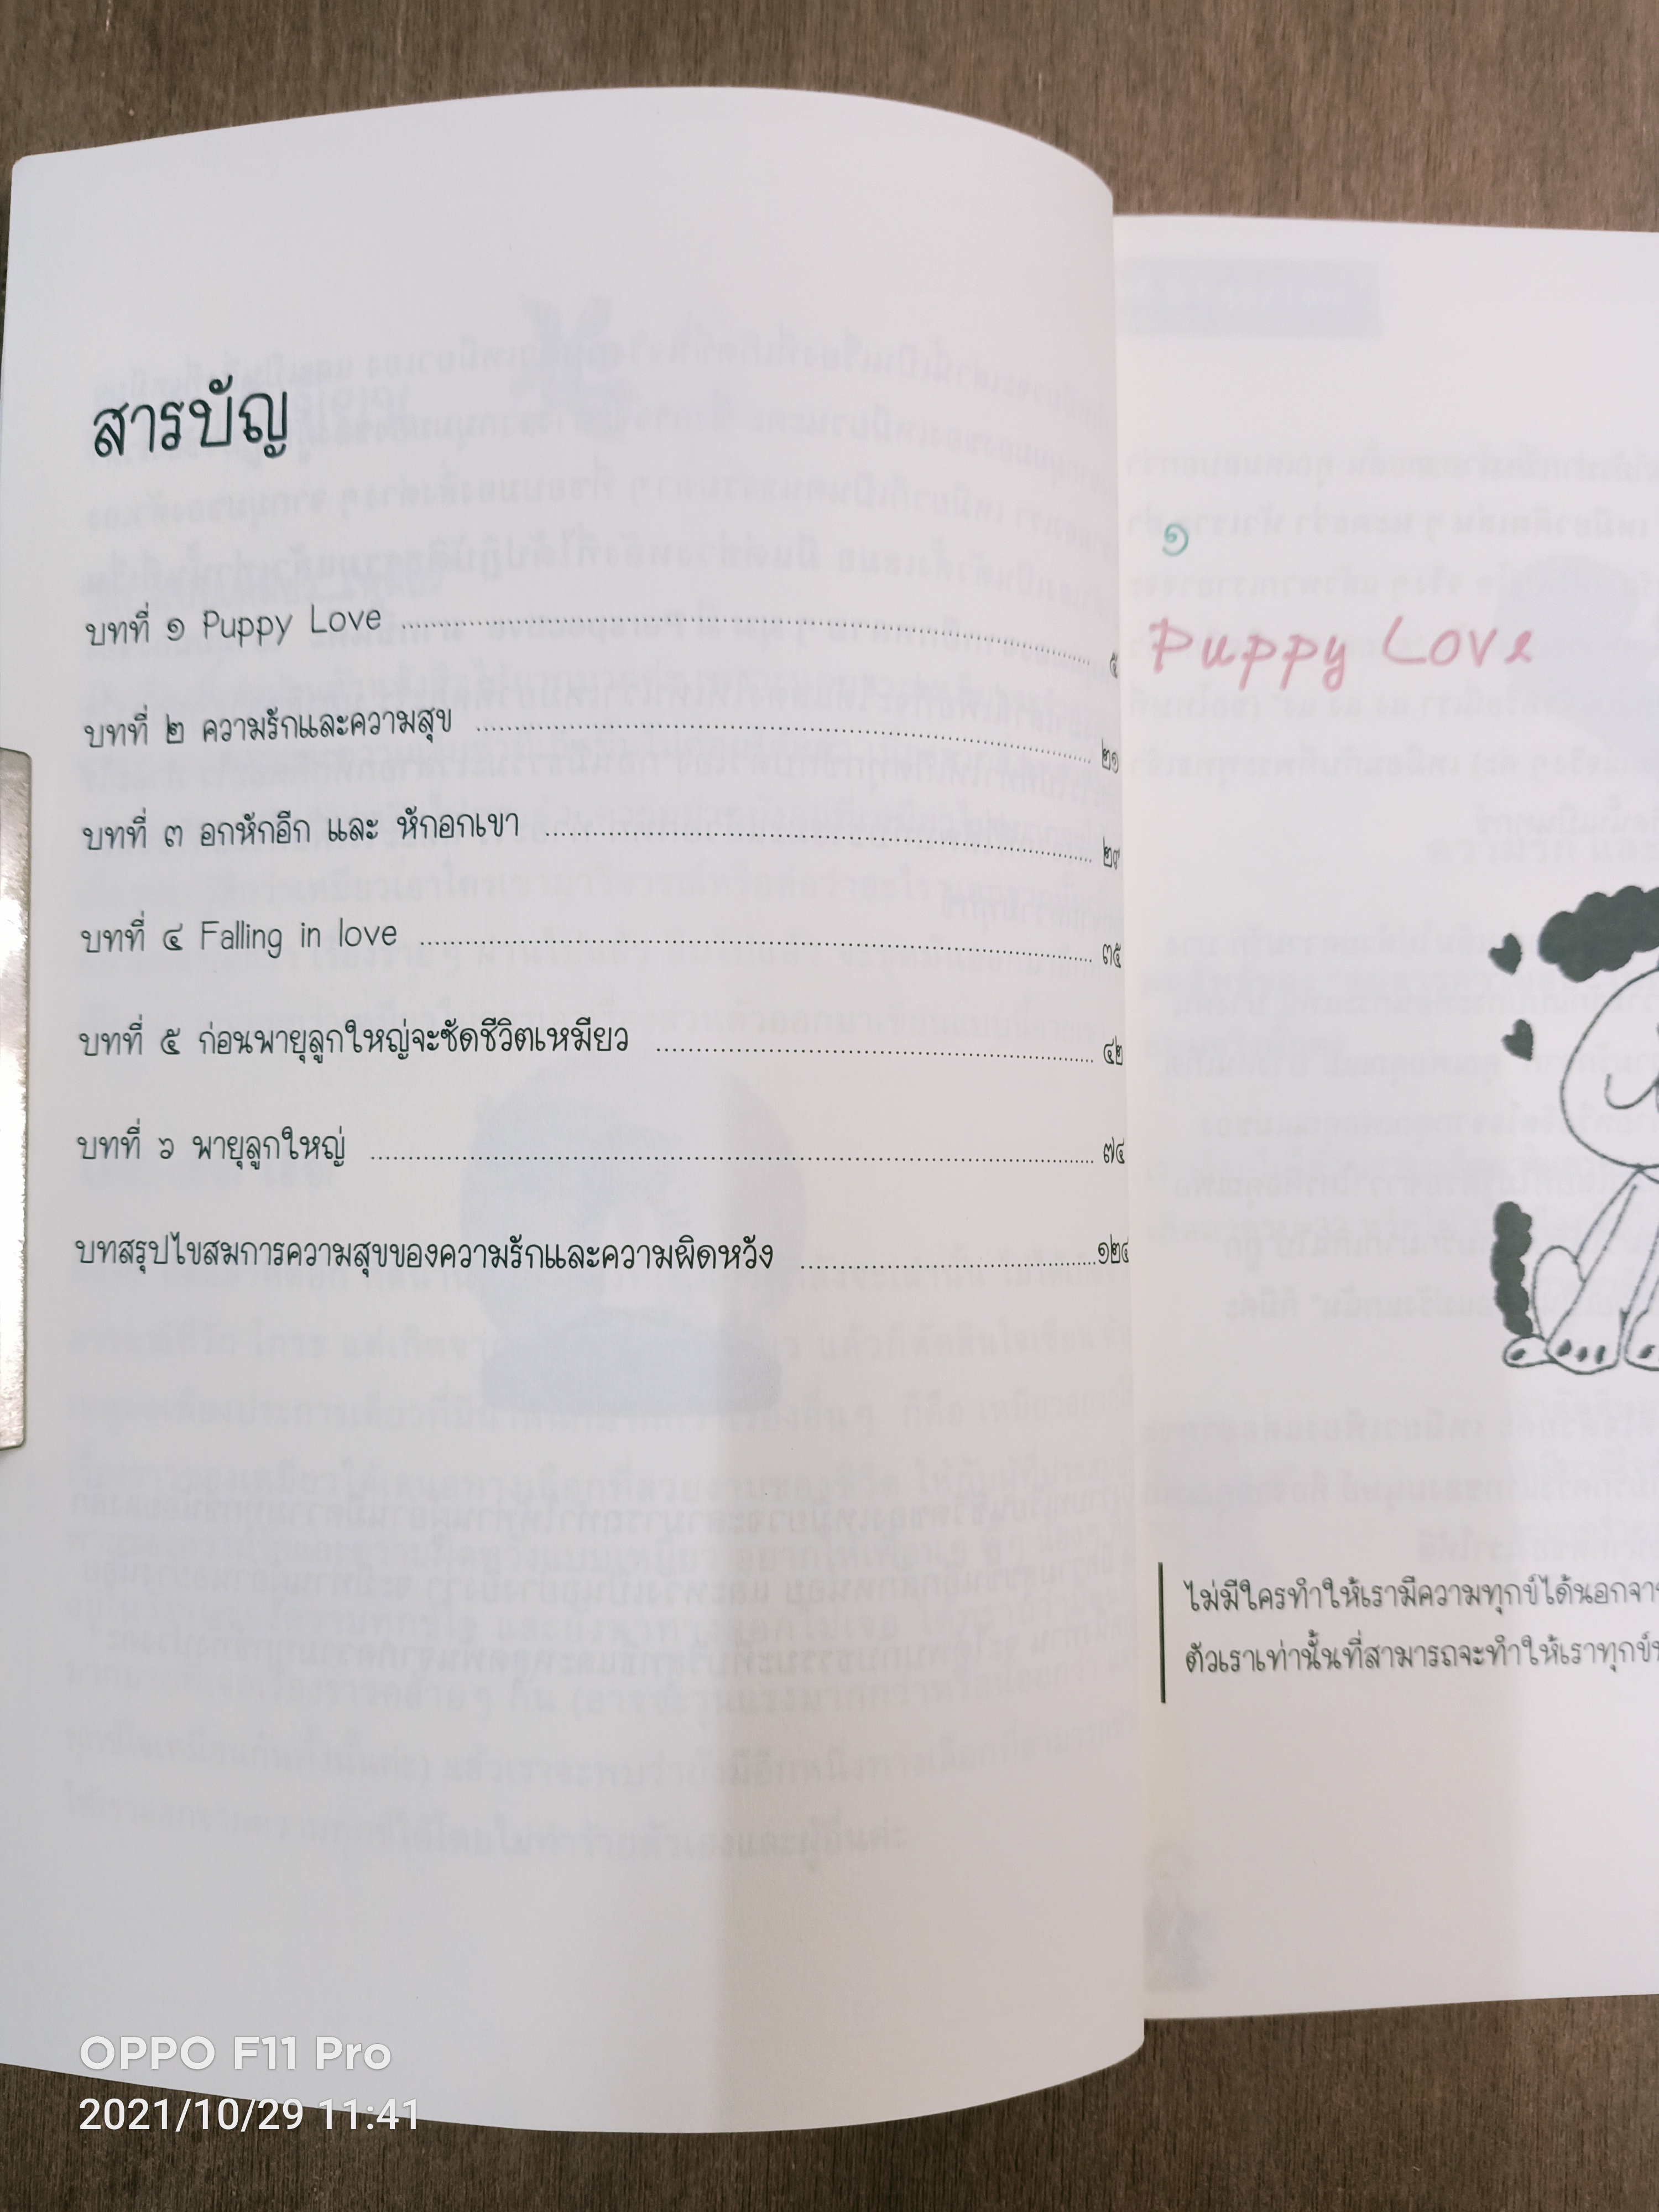 สารบัญ
บทที่ ๑ Puppy Love ........ ๕
บทที่ ๒ ความรักและความสุข ........ ๒๑
บทที่ ๓ อกหักอีก และ หักอกเขา ........ ๒๙
บทที่ ๔ Falling in love ........ ๓๕
บทที่ ๕ ก่อนพายุลูกใหญ่จะซัดชีวิตเหมียว ........ ๔๒
บทที่ ๖ พายุลูกใหญ่ ........ ๗๔
บทสรุปไขสมการความสุขของความรักและความผิดหวัง ........ ๑๒๔
๑
Puppy Love
ไม่มีใครทำให้เรามีความทุกข์ได้นอกจา
ตัวเราเท่านั้นที่สามารถจะทำให้เราทุกข์
OPPO F11 Pro
2021/10/29 11:41